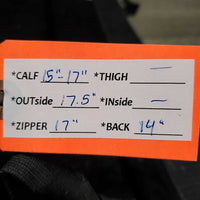 *CALF 15"-17" *THIGH —
*OUTside 17.5" *INside —
*ZIPPER 17" *BACK 19"